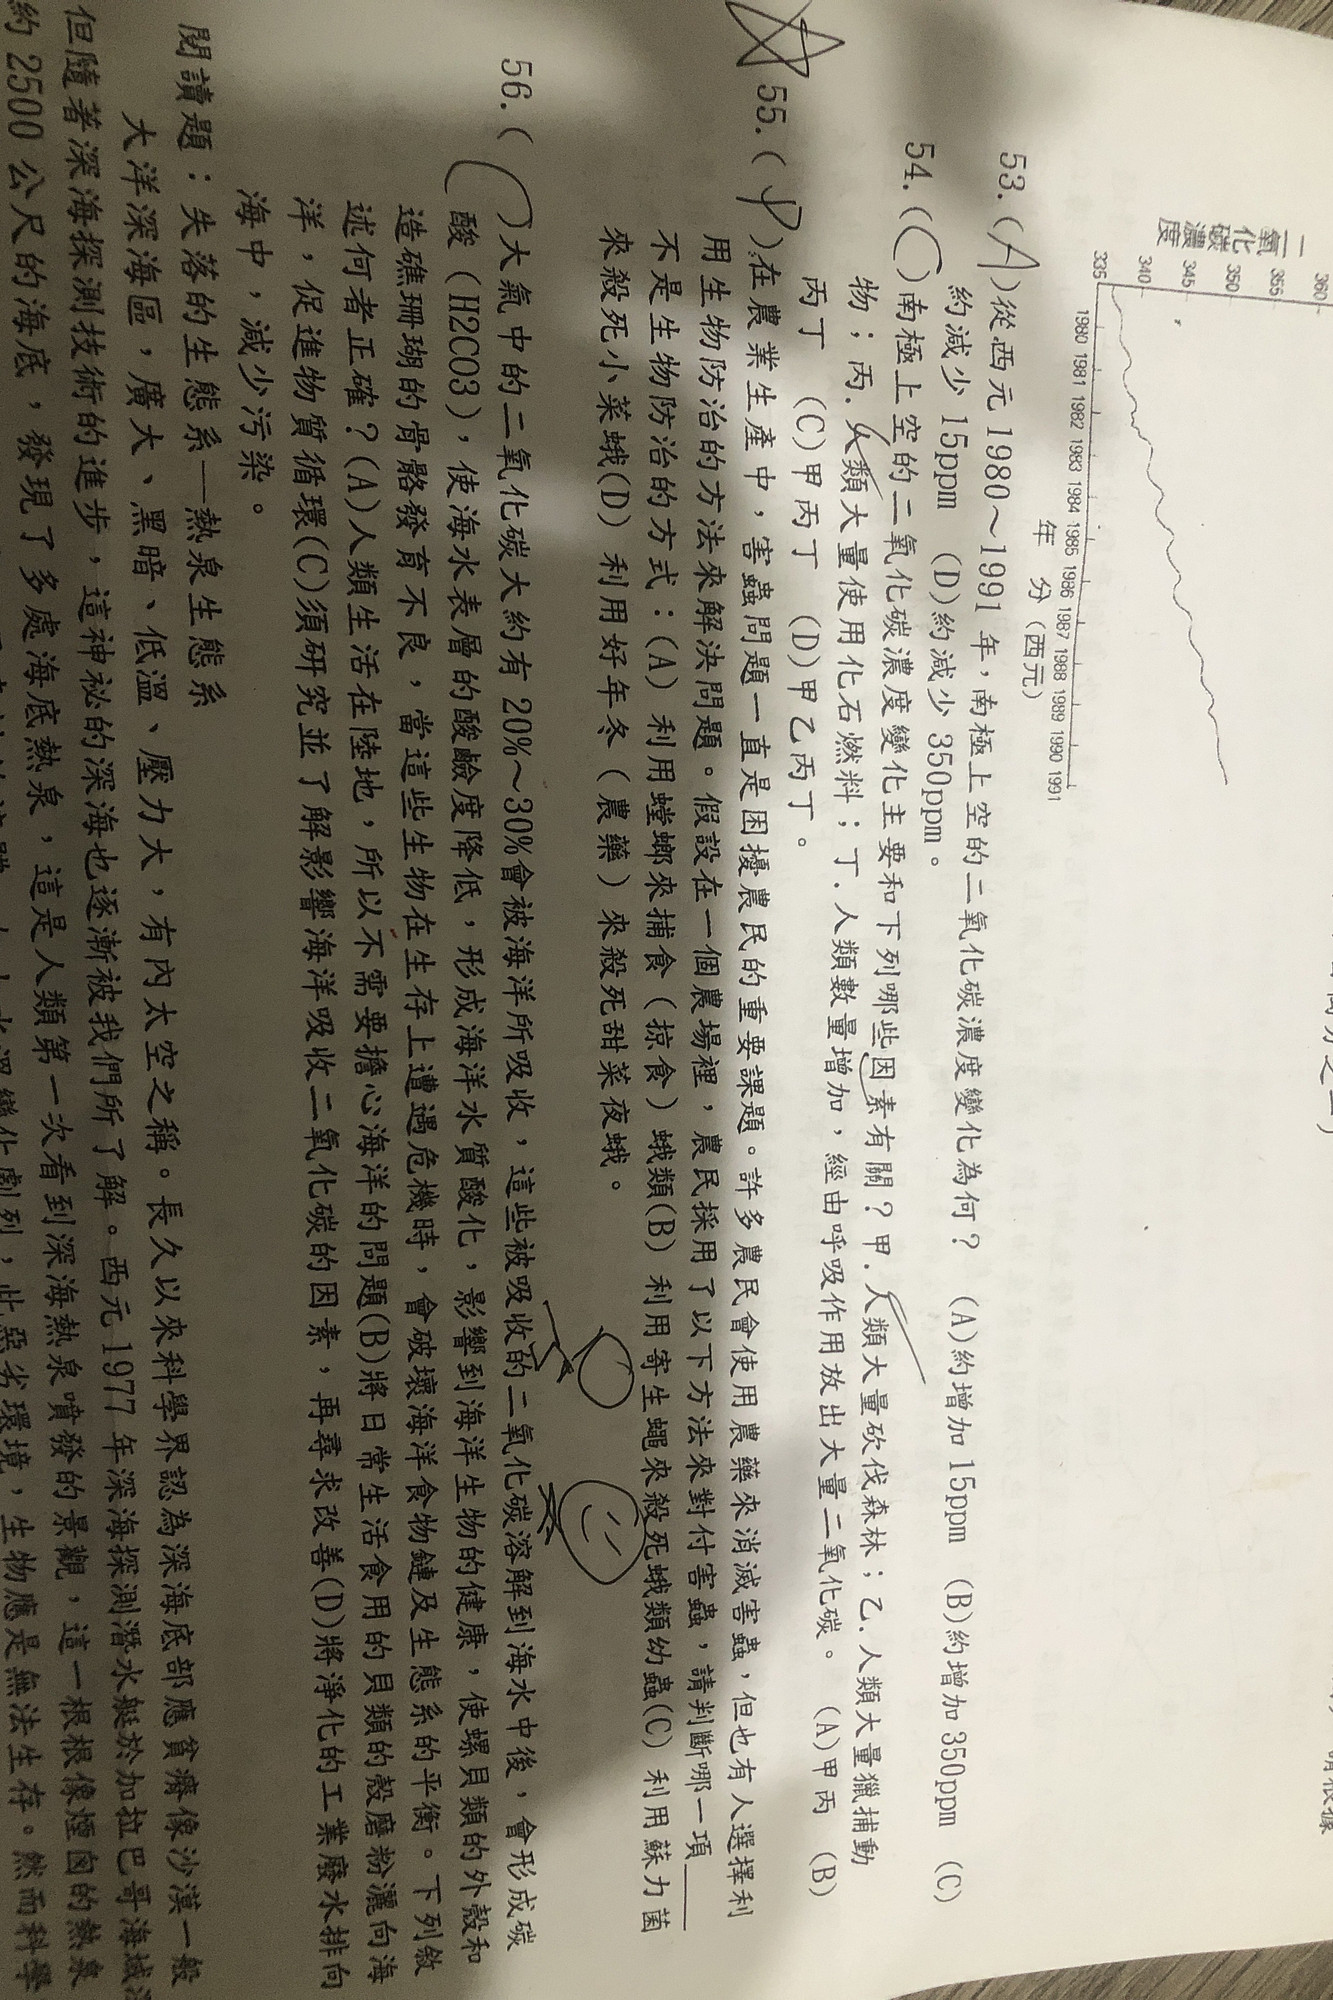 二氧化碳濃度
360
355
350
345
340
335
1980 1981 1982 1983 1984 1985 1986 1987 1988 1989 1990 1991
年 分(西元)
53.(A)從西元 1980～1991 年，南極上空的二氧化碳濃度變化為何？ (A)約增加 15ppm (B)約增加 350ppm (C)
約減少 15ppm (D)約減少 350ppm。
54.(C)南極上空的二氧化碳濃度變化主要和下列哪些因素有關？甲.人類大量砍伐森林；乙.人類大量獵捕動
物；丙.人類大量使用化石燃料；丁.人類數量增加，經由呼吸作用放出大量二氧化碳。 (A)甲丙 (B)
丙丁 (C)甲丙丁 (D)甲乙丙丁。
55.( )在農業生產中，害蟲問題一直是困擾農民的重要課題。許多農民會使用農藥來消滅害蟲，但也有人選擇利
用生物防治的方法來解決問題。假設在一個農場裡，農民採用了以下方法來對付害蟲，請判斷哪一項
不是生物防治的方式：(A) 利用螳螂來捕食（掠食）蛾類(B) 利用寄生蠅來殺死蛾類幼蟲(C) 利用蘇力菌
來殺死小菜蛾(D) 利用好年冬（農藥）來殺死甜菜夜蛾。
56.(C)大氣中的二氧化碳大約有 20%～30%會被海洋所吸收，這些被吸收的二氧化碳溶解到海水中後，會形成碳
酸（H2CO3），使海水表層的酸鹼度降低，形成海洋水質酸化，影響到海洋生物的健康，使螺貝類的外殼和
造礁珊瑚的骨骼發育不良，當這些生物在生存上遭遇危機時，會破壞海洋食物鏈及生態系的平衡。下列敘
述何者正確？(A)人類生活在陸地，所以不需要擔心海洋的問題(B)將日常生活食用的貝類的殼磨粉灑向海
洋，促進物質循環(C)須研究並了解影響海洋吸收二氧化碳的因素，再尋求改善(D)將淨化的工業廢水排向
海中，減少污染。
閱讀題：失落的生態系──熱泉生態系
大洋深海區，廣大、黑暗、低溫、壓力大，有內太空之稱。長久以來科學界認為深海底部應貧瘠像沙漠一般
但隨著深海探測技術的進步，這神祕的深海也逐漸被我們所了解。西元 1977 年深海探測潛水艇於加拉巴哥海域
約 2500 公尺的海底，發現了多處海底熱泉，這是人類第一次看到深海熱泉噴發的景觀，這一根根像煙囪的熱泉
變化劇烈，此惡劣環境，生物應是無法生存。然而科學